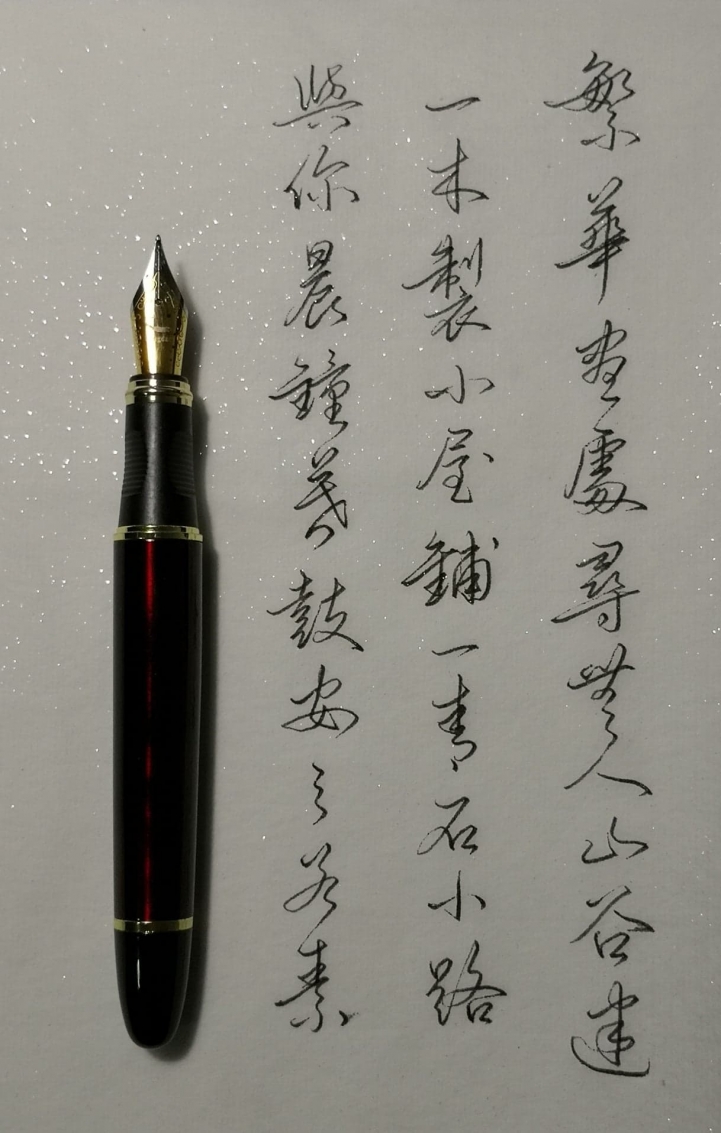 繁華盡處尋無人山谷建
一木製小屋鋪一青石小路
與你晨鐘暮鼓安之若素